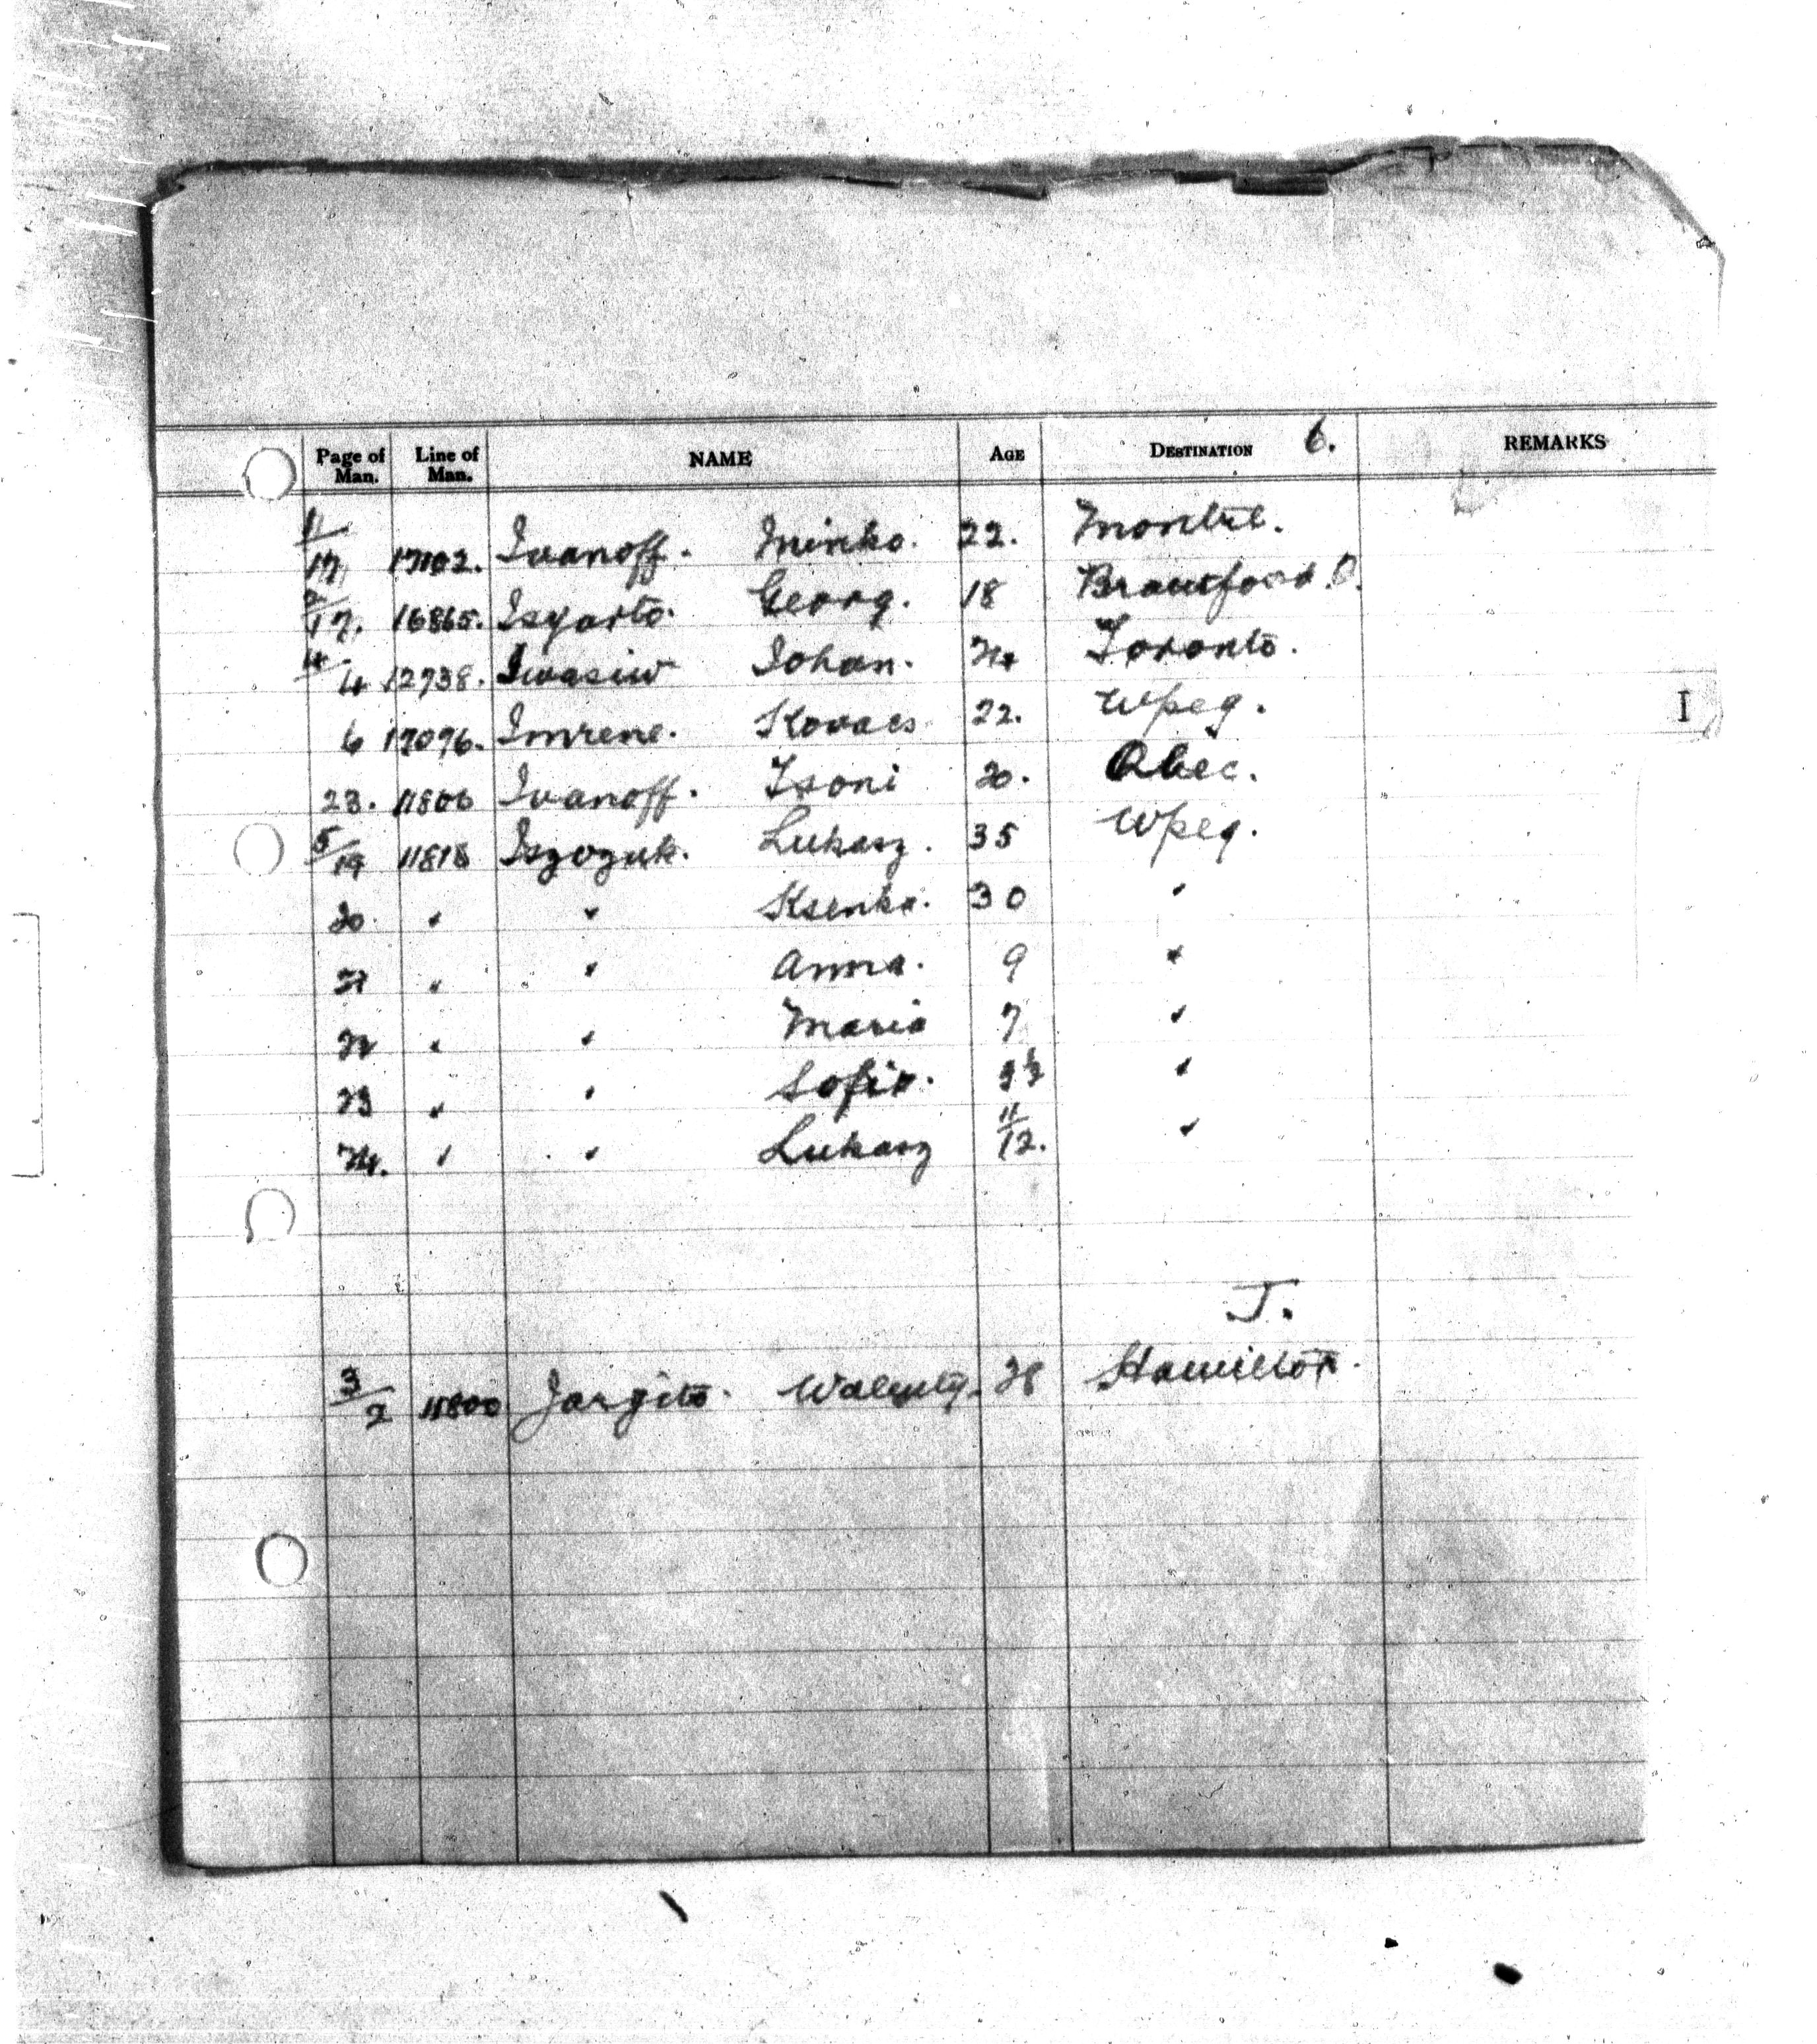 6.
Page of Man. Line of Man. NAME AGE DESTINATION REMARKS
11/17 17102. Ivanoff. Minko. 22. Montrl.
2/17. 16865. Isyarto. Georg. 18 Brantford. O.
4/4 12738. Iwasiw Iohan. 24 Toronto.
6 17096. Imrene. Kovacs 22. Wpeg.
I
23. 11806 Ivanoff. Tsoni 20. Qbec.
5/19 11818 Iszozuk. Lukasz. 35 Wpeg.
20. " " Ksenka. 30 "
21 " " Anna. 9 "
22 " " Maria 7 "
23 " " Sofia. "
24. " " Lukasz 11/12. "
J.
3/2 11800 Hamilton.